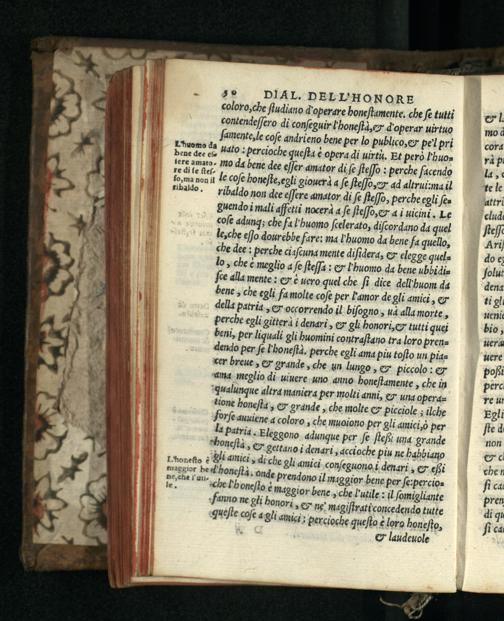 50 DIAL. DELL'HONORE
coloro, che studiano d'operare honestamente. che se tutti
contendessero di conseguir l'honestà, & d'operar uirtuo
samente, le cose andrieno bene per lo publico, & pe'l pri
uato: percioche questa è opera di uirtù. Et però l'huo-
mo da bene dee esser amator di se stesso: perche facendo
le cose honeste, egli giouerà a se stesso, & ad altrui: ma il
ribaldo non dee essere amator di se stesso, perche egli se-
guendo i mali affetti nocerà a se stesso, & a i uicini. Le
cose adunq; che fa l'huomo scelerato, discordano da quel
le, che esso dourebbe fare: ma l'huomo da bene fa quello,
che dee: perche ciascuna mente disidera, & elegge quel-
lo, che è meglio a se stessa: & l'huomo da bene ubbidi-
sce alla mente: & è uero quel che si dice dell'huom da
bene, che egli fa molte cose per l'amor de gli amici, &
della patria, & occorrendo il bisogno, uà alla morte,
perche egli gitterà i denari, & gli honori, & tutti quei
beni, per liquali gli huomini contrastano tra loro pren-
dendo per se l'honestà. perche egli ama piu tosto un pia-
cer breue, & grande, che un lungo, & picciolo: &
ama meglio di uiuere uno anno honestamente, che in
qualunque altra maniera per molti anni, & una opera-
tione honesta, & grande, che molte & picciole: ilche
forse auuiene a coloro, che muoiono per gli amici, ò per
la patria. Eleggono adunque per se stessi una grande
honestà, & gettano i denari, accioche piu ne habbiano
gli amici, di che gli amici conseguono i denari, & essi
l'honestà. onde prendono il maggior bene per se: percio-
che l'honesto è maggior bene, che l'utile: il somigliante
fanno ne gli honori, & ne' magistrati concedendo tutte
queste cose a gli amici; percioche questo è loro honesto,
& laudeuole
L'huomo da
bene dee es-
sere amato-
re di se stes-
so, ma non il
ribaldo.
L'honesto è
maggior be
ne, che l'uti-
le.